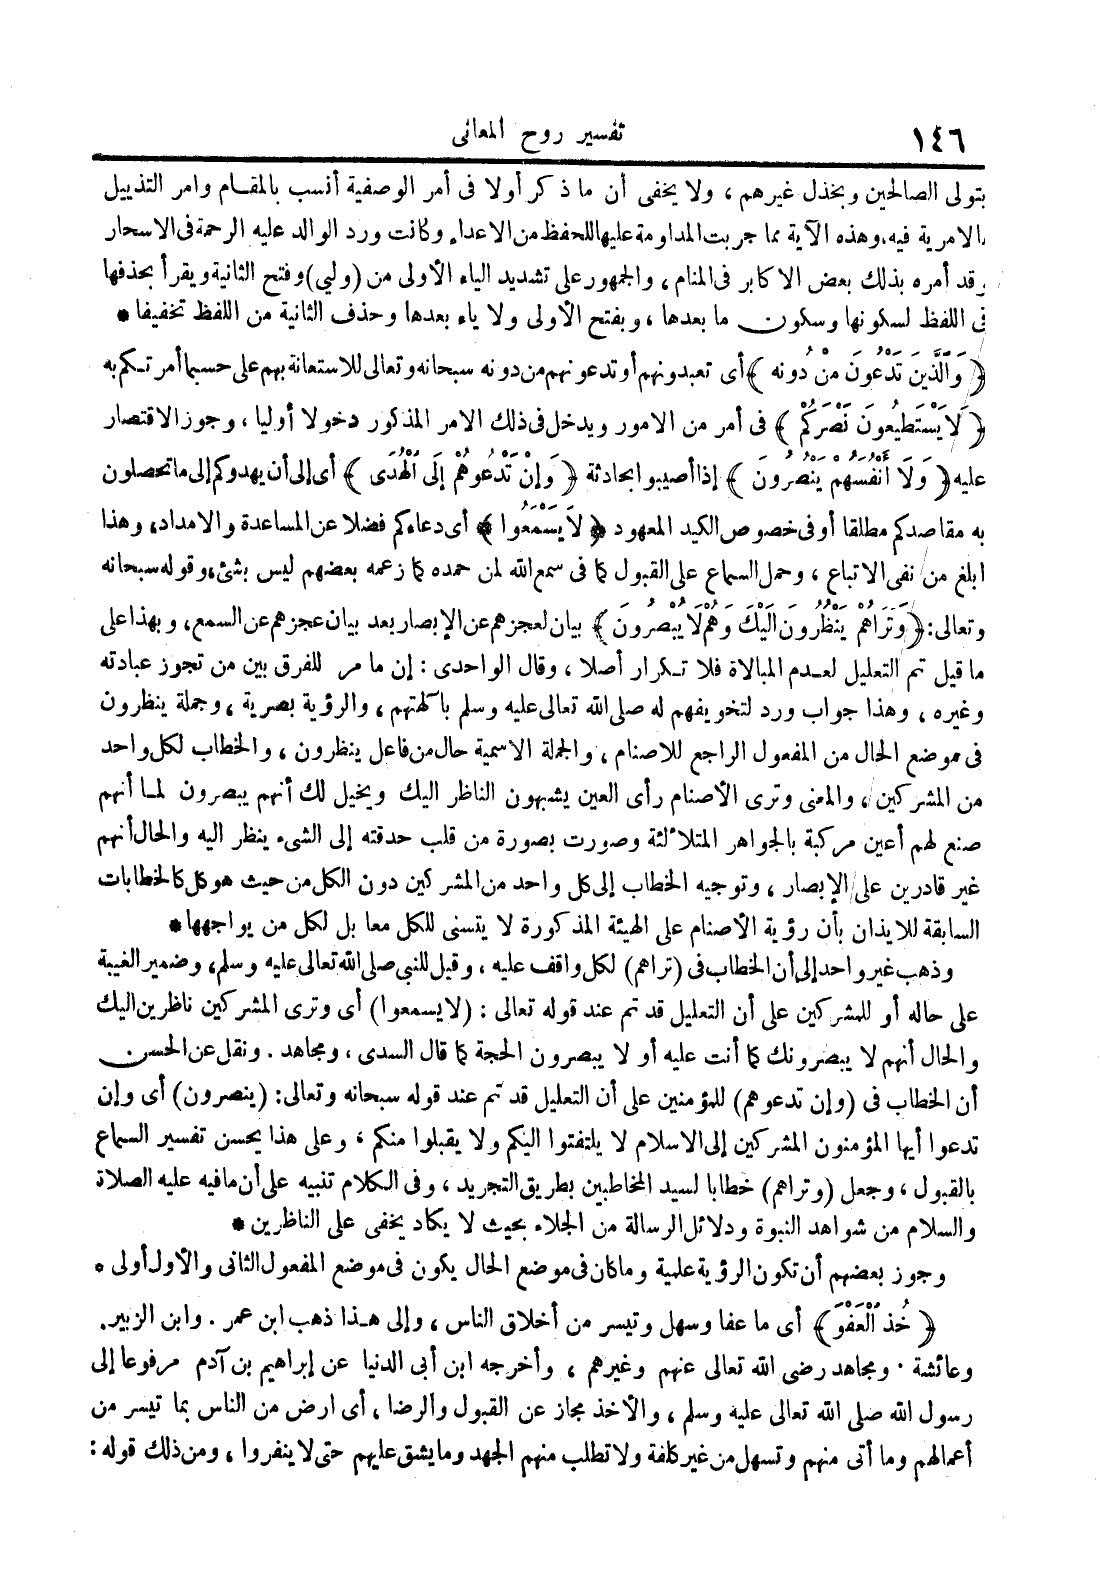 ١٤٦
تفسير روح المعانى
يتولى الصالحين ويخذل غيرهم ، ولا يخفى أن ما ذكر أولا فى أمر الوصفية أنسب بالمقام وامر التذييل
بالامرية فيه، وهذه الآية مما جربت المداومة عليها للحفظ من الاعداء وكانت ورد الوالد عليه الرحمة فى الاسحار
وقد أمره بذلك بعض الاكابر فى المنام ، والجمهور على تشديد الياء الأولى من (وليي) وفتح الثانية ويقرأ بحذفها
فى اللفظ لسكونها وسكون ما بعدها ، وبفتح الأولى ولا ياء بعدها وحذف الثانية من اللفظ تخفيفا *
﴿ وَٱلَّذِينَ تَدْعُونَ مِنْ دُونِهِ ﴾ أى تعبدونهم أو تدعونهم من دونه سبحانه وتعالى للاستعانة بهم على حسبما أمرتكم به
﴿ لَا يَسْتَطِيعُونَ نَصْرَكُمْ ﴾ فى أمر من الامور ويدخل فى ذلك الامر المذكور دخولا أوليا ، وجوز الاقتصار
عليه ﴿ وَلَا أَنْفُسَهُمْ يَنْصُرُونَ ﴾ إذا أصيبوا بحادثة ﴿ وَإِنْ تَدْعُوهُمْ إِلَى ٱلْهُدَى ﴾ أى إلى أن يهدوكم إلى ما تحصلون
به مقاصدكم مطلقا أو فى خصوص الكيد المعهود ﴿ لَا يَسْمَعُوا ﴾ أى دعاءكم فضلا عن المساعدة والامداد، وهذا
ابلغ من نفى الاتباع ، وحمل السماع على القبول كما فى سمع الله لمن حمده كما زعمه بعضهم ليس بشئ، وقوله سبحانه
وتعالى: ﴿ وَتَرَاهُمْ يَنْظُرُونَ إِلَيْكَ وَهُمْ لَا يُبْصِرُونَ ﴾ بيان لعجزهم عن الإبصار بعد بيان عجزهم عن السمع، وبهذا على
ما قيل تم التعليل لعدم المبالاة فلا تكرار أصلا ، وقال الواحدى : إن ما مر للفرق بين من تجوز عبادته
وغيره ، وهذا جواب ورد لتخويفهم له صلى الله تعالى عليه وسلم بآلهتهم ، والرؤية بصرية ، وجملة ينظرون
فى موضع الحال من المفعول الراجع للاصنام ، والجملة الاسمية حال من فاعل ينظرون ، والخطاب لكل واحد
من المشركين ، والمعنى وترى الأصنام رأى العين يشبهون الناظر اليك ويخيل لك أنهم يبصرون لما أنهم
صنع لهم أعين مركبة بالجواهر المتلالئة وصورت بصورة من قلب حدقته إلى الشىء ينظر اليه والحال أنهم
غير قادرين على الإبصار ، وتوجيه الخطاب إلى كل واحد من المشركين دون الكل من حيث هو كل كالخطابات
السابقة للايذان بأن رؤية الأصنام على الهيئة المذكورة لا يتسنى للكل معا بل لكل من يواجهها *
وذهب غير واحد إلى أن الخطاب فى (تراهم) لكل واقف عليه ، وقيل للنبي صلى الله تعالى عليه وسلم، وضمير الغيبة
على حاله أو للمشركين على أن التعليل قد تم عند قوله تعالى : (لا يسمعوا) أى وترى المشركين ناظرين اليك
والحال أنهم لا يبصرونك كما أنت عليه أو لا يبصرون الحجة كما قال السدى ، ومجاهد . ونقل عن الحسن
أن الخطاب فى (وإن تدعوهم) للمؤمنين على أن التعليل قد تم عند قوله سبحانه وتعالى: (ينصرون) أى وإن
تدعوا أيها المؤمنون المشركين إلى الاسلام لا يلتفتوا اليكم ولا يقبلوا منكم ، وعلى هذا يحسن تفسير السماع
بالقبول ، وجعل (وتراهم) خطابا لسيد المخاطبين بطريق التجريد ، وفى الكلام تنبيه على أن ما فيه عليه الصلاة
والسلام من شواهد النبوة ودلائل الرسالة من الجلاء بحيث لا يكاد يخفى على الناظرين *
وجوز بعضهم أن تكون الرؤية علمية وما كان فى موضع الحال يكون فى موضع المفعول الثانى والأول أولى *
﴿ خُذِ ٱلْعَفْوَ ﴾ أى ما عفا وسهل وتيسر من أخلاق الناس ، وإلى هذا ذهب ابن عمر . وابن الزبير.
وعائشة . ومجاهد رضى الله تعالى عنهم وغيرهم ، وأخرجه ابن أبى الدنيا عن إبراهيم بن آدم مرفوعا إلى
رسول الله صلى الله تعالى عليه وسلم ، والأخذ مجاز عن القبول والرضا ، أى ارض من الناس بما تيسر من
أعمالهم وما أتى منهم وتسهل من غير كلفة ولا تطلب منهم الجهد وما يشق عليهم حتى لا ينفروا ، ومن ذلك قوله :